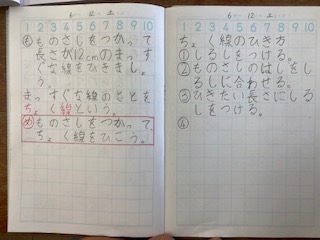 6 12 土
1 2 3 4 5 6 7 8 9 10
も ものさしをつかって
長さが12cmのまっす
ぐな線をひきましょ
う。
まっすぐな線のことを
ちょく線という。
め ものさしをつかって、
ちょく線をひこう。
6 12 土
1 2 3 4 5 6 7 8 9 10
ちょく線のひき方
①しるしをつける。
②ものさしのはしをし
るしに合わせる。
③ひきたい長さにしる
しをつける。
④